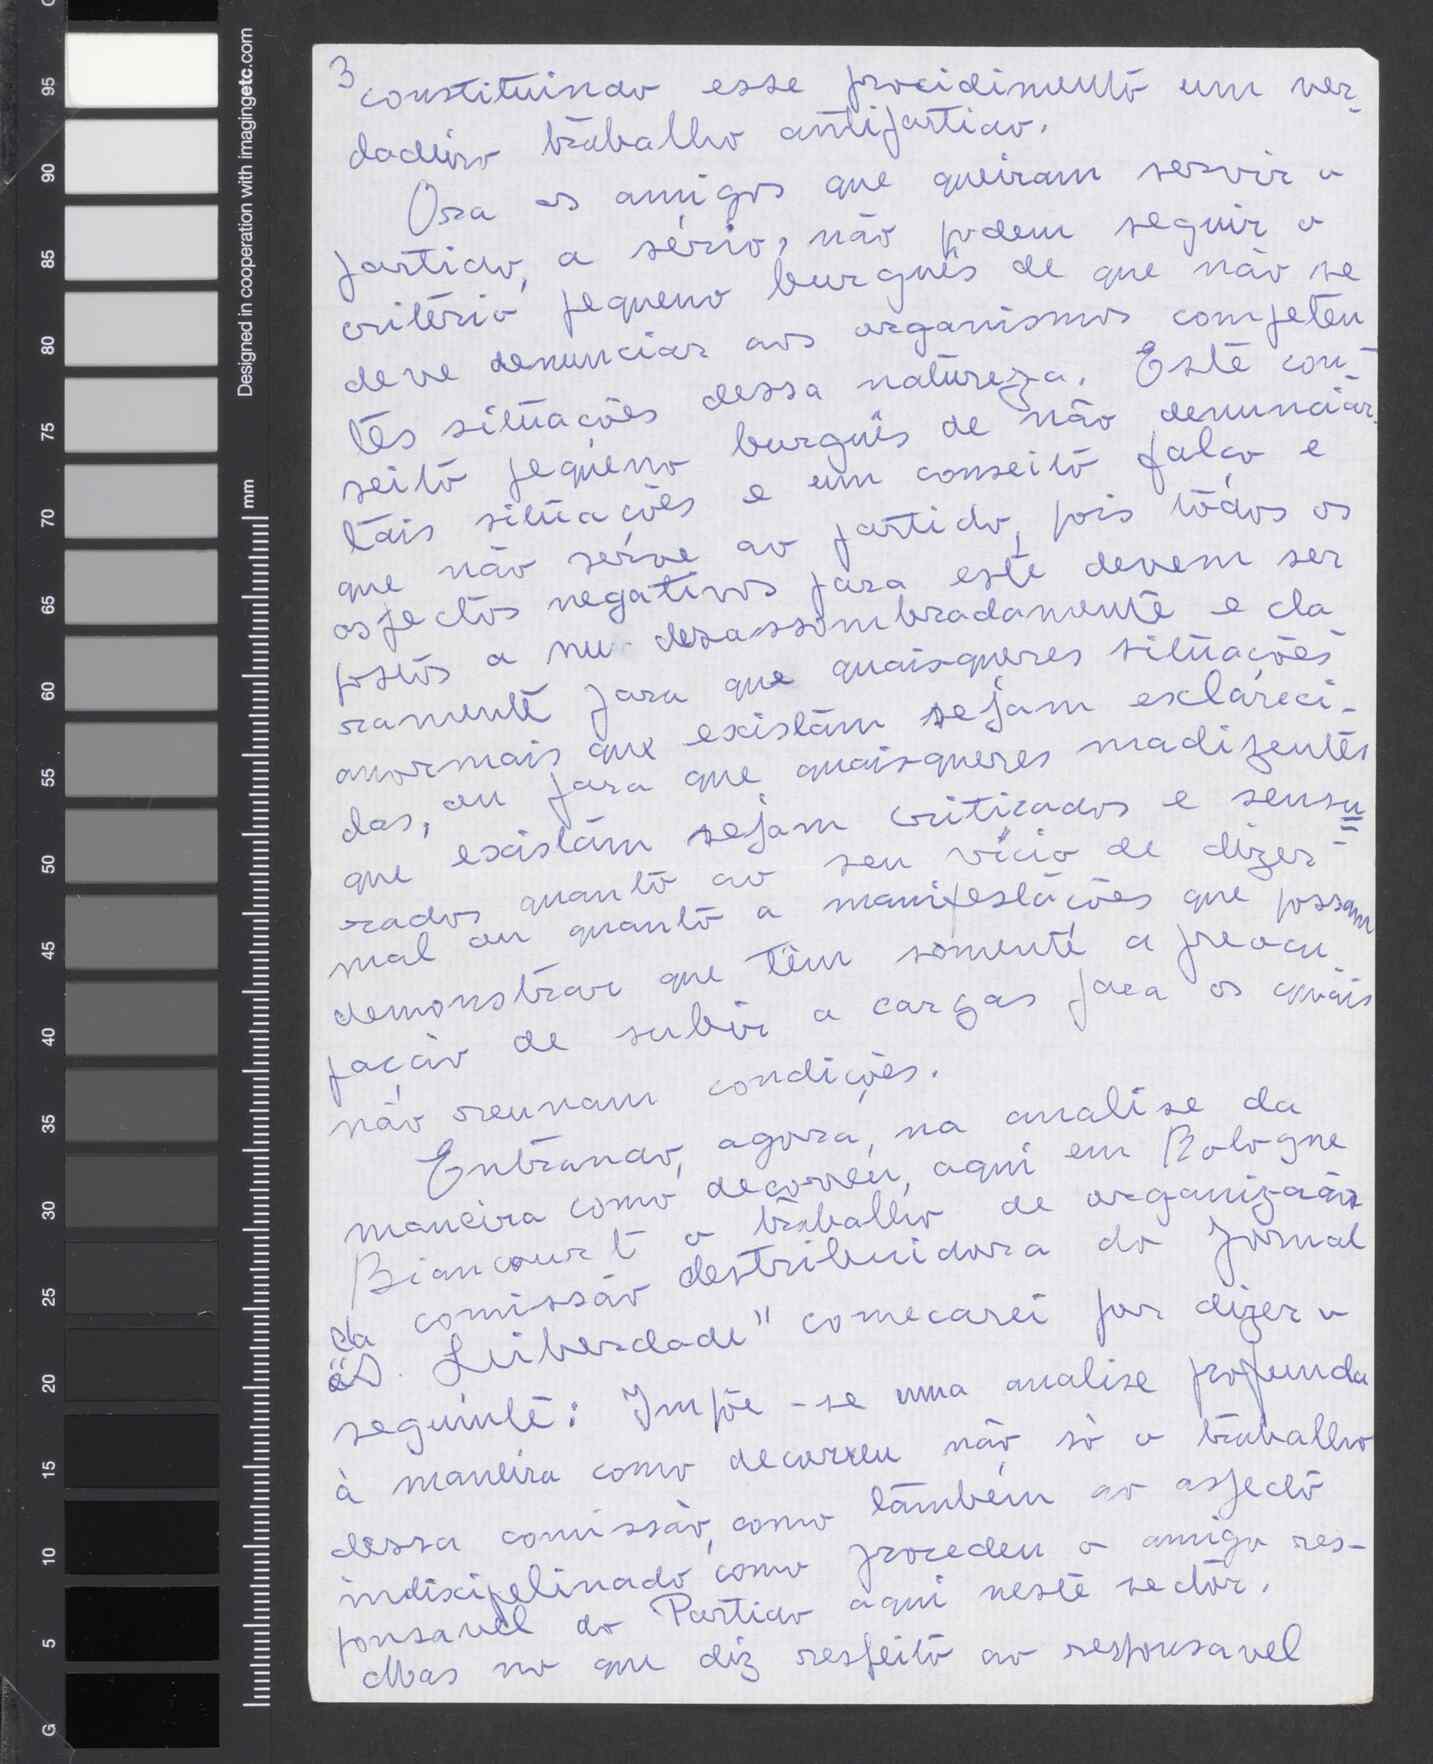 3
constituindo esse procidimento um ver-
dadeiro trabalho antipartido.
Ora os amigos que queiram servir o
partido, a sério, não podem seguir o
critério pequeno burguês de que não se
deve denunciar aos organismos competen
tes situações dessa natureza. Este con-
seito pequeno burguês de não denunciar
tais situações e um conseito falço e
que não serve ao partido, pois todos os
aspectos negativos para este devem ser
postos a nu desassombradamente e cla
ramente para que quaisqueres situações
anormais que existam sejam esclareci-
das, ou para que quaisqueres madizentes
que existam sejam criticados e sensu
rados quanto ao seu vício de dizer-
mal ou quanto a manifestações que possam
demonstrar que têm somente a preocu
pação de subir a cargas para os quais
não reunam condições.
Entrando, agora, na analise da
maneira como decorreu, aqui em Bologne
Biancourt o trabalho de organização
da comissão destribuidora do Jornal
"A. Liiberdade" comecarei por dizer o
seguinte: Impõe-se uma analise profunda
à maneira como decorreu não só o trabalho
dessa comissão, como também ao aspecto
indiscipelinado como procedeu o amigo res-
ponsavel do Partido aqui neste sector.
Mas no que diz respeito ao responsavel
95
90
85
80
75
70
65
60
55
50
45
40
35
30
25
20
15
10
5
G
mm
Designed in cooperation with imagingetc.com